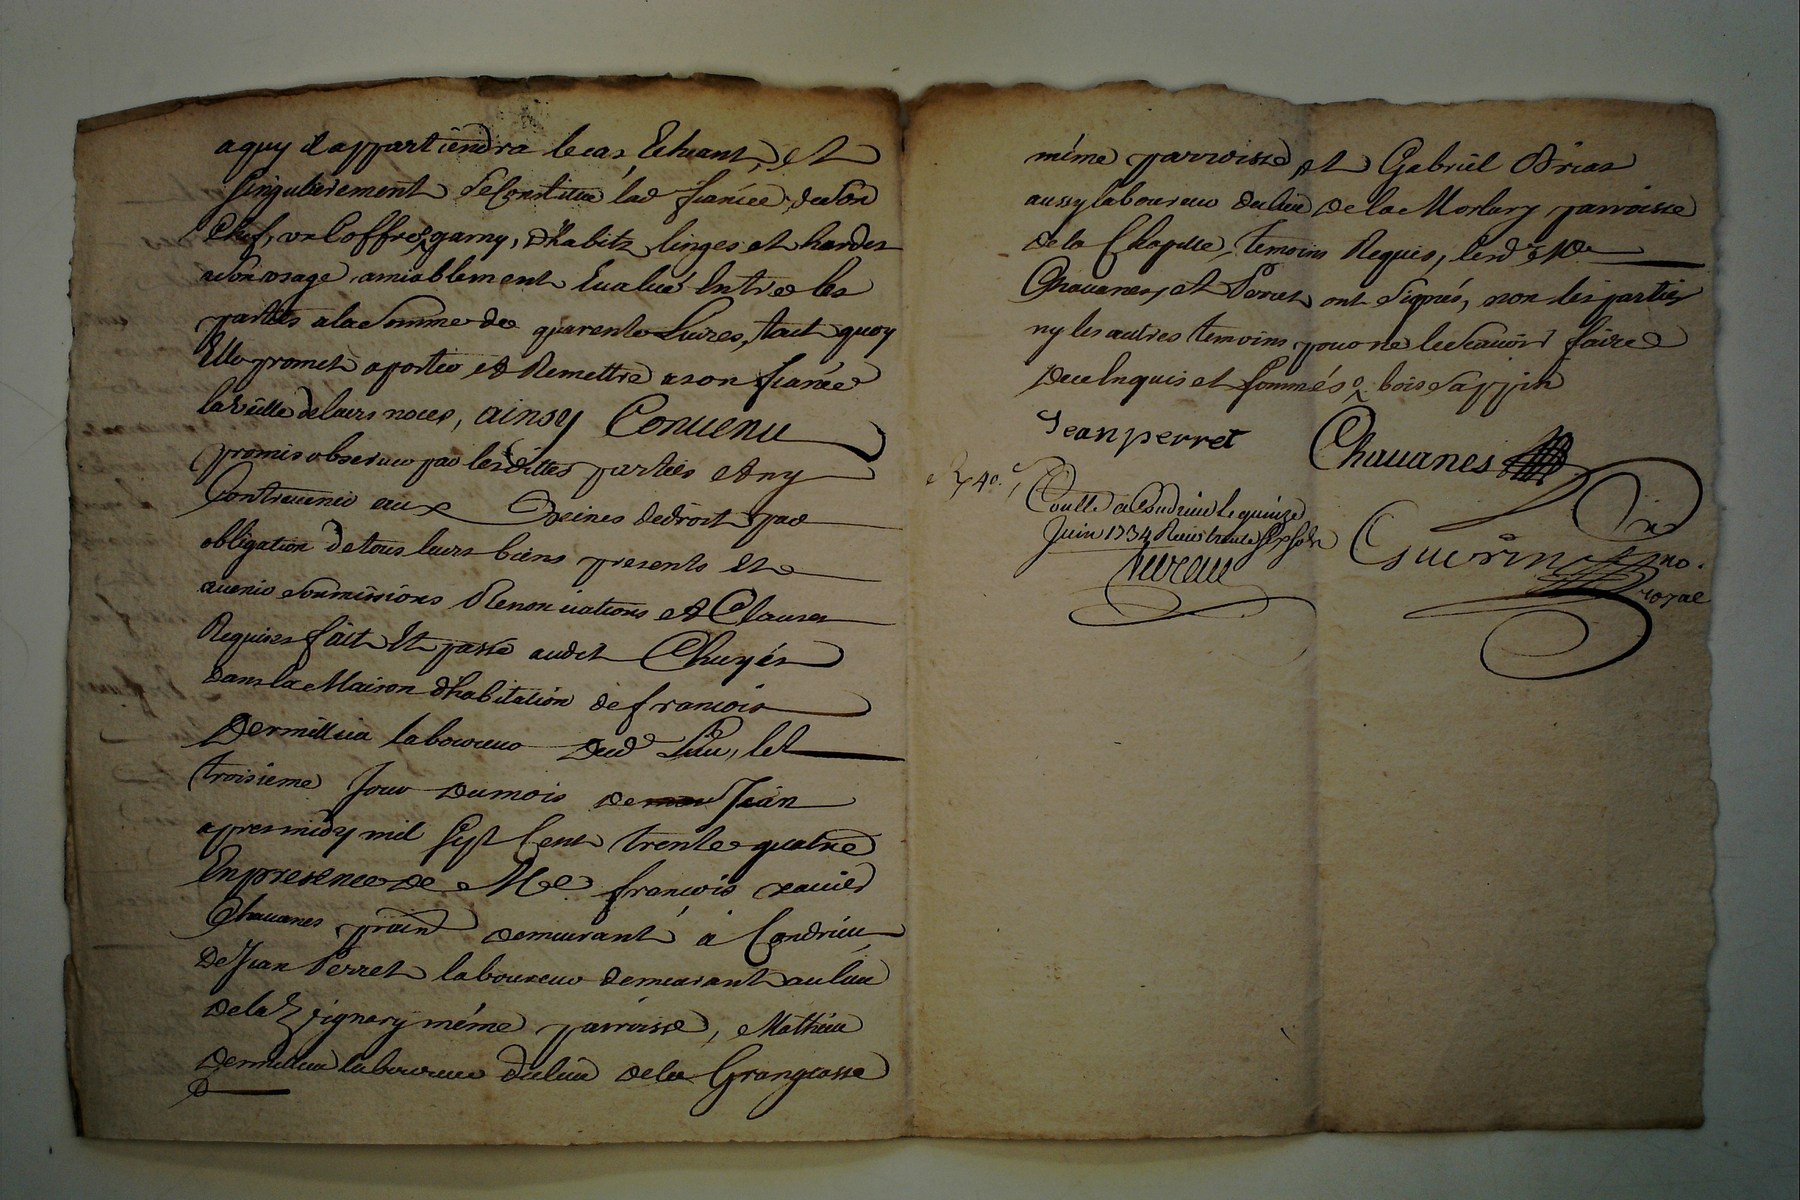 a quy il appartiendra le cas Echeant, et
singulierement se Constitue lad fiancée de son
Chef, un Coffre garny, d'habitz linges et hardes
a son usage amiablement Evalué Entre les
parties a la somme de quarente Livres, tout quoy
Elle promet aporter et Remettre a son fiancé
la veille de leurs noces, ainsy Convenu
promis observer par lesdittes parties et ny
Contrevenir aux peines de droit par
obligation de tous leurs biens presents Et
avenir soumissions Renonciations et Clauses
Requises fait Et passé audit Chuyés
dans la Maison d'habitation de francois
Dermillieu laboureur dud Lieu, le
troisieme Jour du mois de Juin
apres midy mil sept Cent trente quatre
En presence de Me francois xavier
Chavanes demeurant à Condrieu
de Jean Perret laboureur demeurant au lieu
de la même parroisse, Mathieu
Dermillieu laboureur du lieu de la Grangeasse
même parroisse et Gabriel
aussy laboureur du lieu de la parroisse
de la Chapelle, temoins Requis, led Me
Chavanes, et Perret ont signés, non les parties
ny les autres temoins pour ne le scavoir faire
de ce Enquis et sommés
Jean perret Chavanes
Controllé a Condrieu le quinze
Juin 1734 Receu
Guerin no.
royal